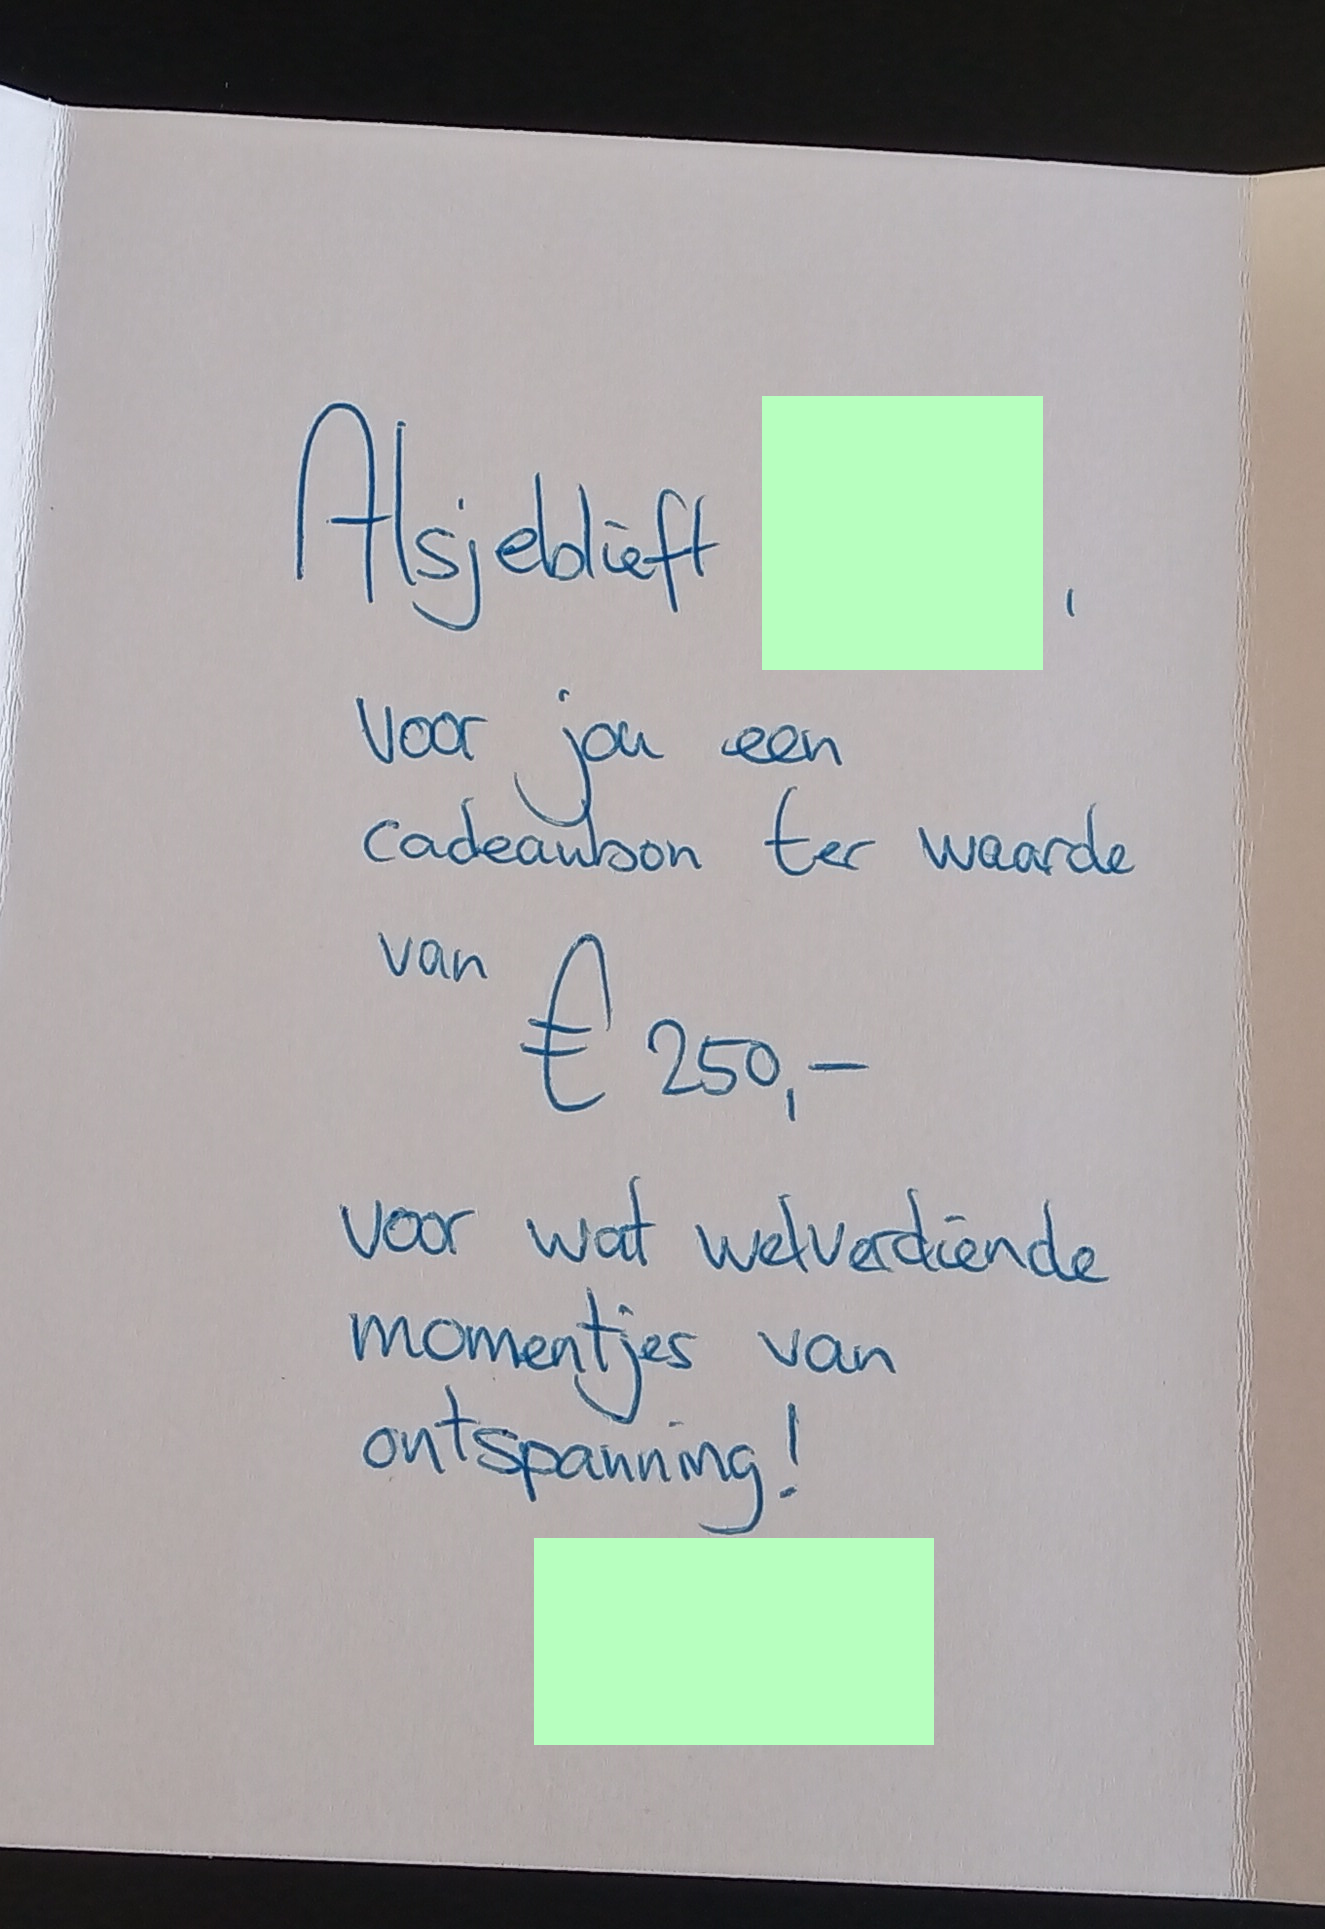 Alsjeblieft ,
voor jou een
cadeaubon ter waarde
van
€ 250,-
voor wat welverdiende
momentjes van
ontspanning!